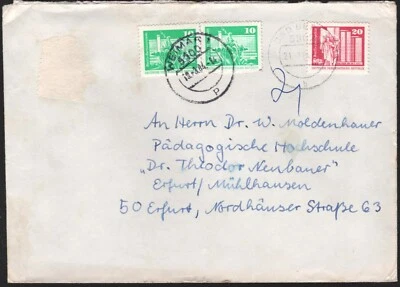 10
10
20
WEIMAR 1
5300
An Herrn Dr. W. Moldenhauer
Pädagogische Hochschule
„Dr. Theodor Neubauer"
Erfurt/Mühlhausen
50 Erfurt, Nordhäuser Straße 63